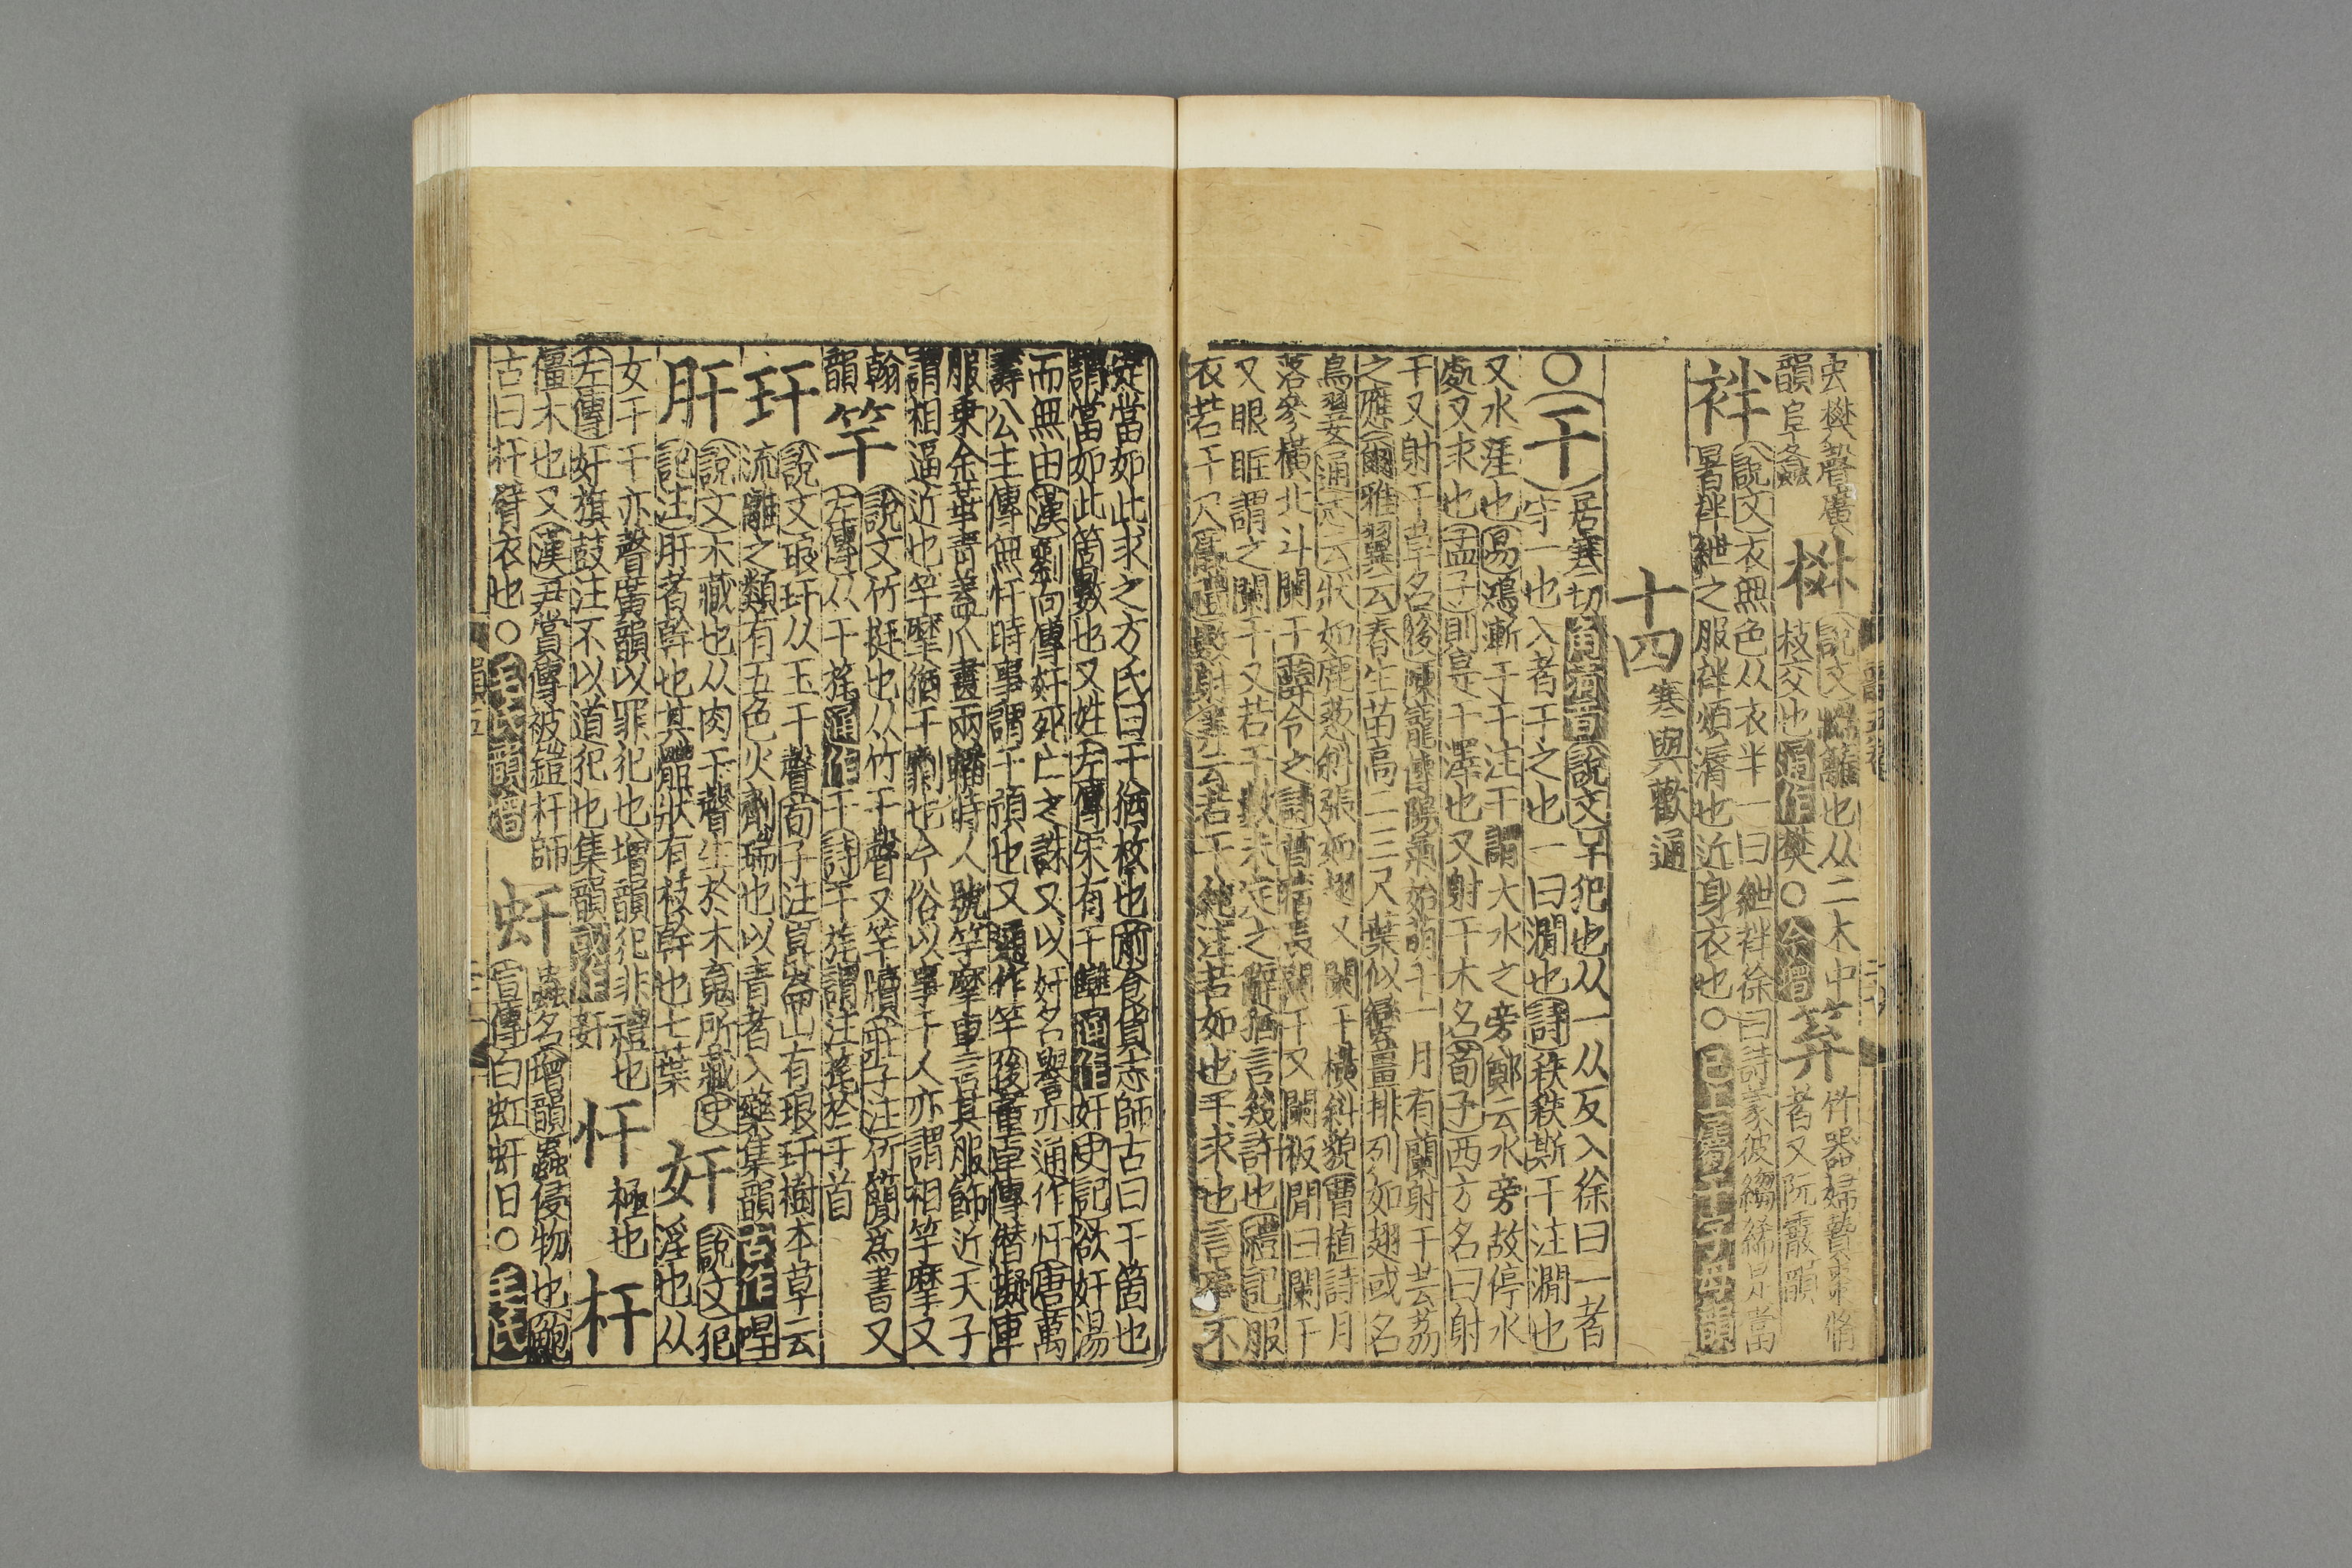 虫樊聲廣
韻阜螽
棥
說文藩籬也从二木中
枝交也通作樊○今增
笲
竹器婦贄棗脩
者又阮霰韻
袢
說文衣無色从衣半一曰紲袢徐曰詩蒙彼縐絺是當
暑袢紲之服袢煩溽也近身衣也○已上屬
十四寒與歡通
○干
居寒切角清音說文干犯也从一从反入徐曰一者
守一也入者干之也一曰澗也詩秩秩斯干注澗也
又水涯也易鴻漸于干注干謂大水之旁鄭云水旁故停水
處又求也孟子則是干澤也又射干木名荀子西方名曰射
干又射干草名後陳寵傳陽氣始萌十一月有蘭射干芸荔
之應爾雅翼云春生苗高二三尺葉似蠻薑排列如翅或名
烏翣通志云狀如鹿葱劍張如翅又闌干橫斜貌曹植詩月
落參橫北斗闌干薛令之詩苜蓿長闌干又闌板間曰闌干
又眼眶謂之闌干又若干數未定之辭猶言幾許也禮記服
衣若干尺矣禮數射筭云若干純注若如也干求也言事不
定當如此求之方氏曰干猶枚也前食貨志師古曰干箇也
謂當如此箇數也又姓左傳宋有干犨通作奸史記欲奸湯
而無由漢劉向傳奸死亡之誅又以奸名譽亦通作忓唐萬
壽公主傳無忓時事謂干預也又通作竿後董卓傳僭擬車
服乘金華青蓋爪畫兩轓時人號竿摩車言其服飾近天子
謂相逼近也竿摩猶干劘也今俗以事干人亦謂相竿摩又
翰
韻
竿
說文竹挺也从竹干聲又竿牘莊子注竹簡爲書又
左傳从干旄通作干詩干旄謂注旄於干首
玕
說文琅玕从玉干聲荀子注崑崙山有琅玕樹本草云
流離之類有五色火劑瑞也以青者入藥集韻古作𤥚
肝
說文木藏也从肉干聲生於木䰟所藏史
記注肝者幹也其體狀有枝幹也七葉
奸
說文犯
淫也从
女干干亦聲廣韻以罪犯也增韻犯非禮也
左傳奸旗鼓注不以道犯也集韻或作姧
忓
極也
杆
僵木也又漢尹賞傳被鎧杆師
古曰杆臂衣也○毛氏韻增
虷
蟲名增韻蟲侵物也鮑
宣傳白虹虷日○毛氏